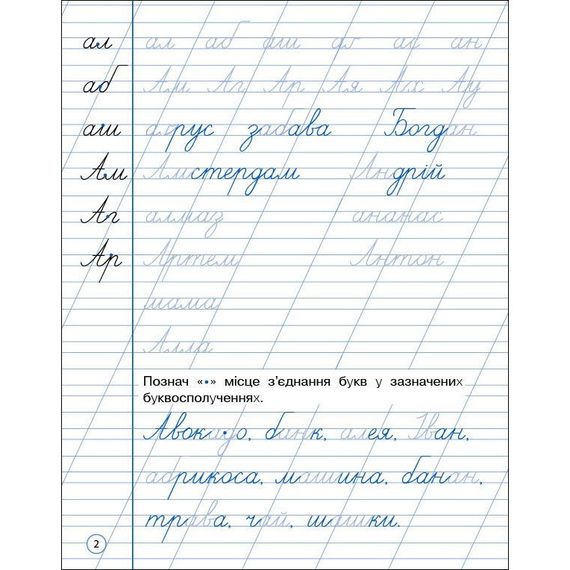 ал ал аб аш ая ас ан
аб Ам Аг Ар Ая Ах Ау
аш абрус забава Богдан
Ам Амстердам Андрій
Аг алмаз ананас
Ар Артем Антон
мама
Алла
Познач «•» місце з’єднання букв у зазначених
буквосполученнях.
Авокадо, банк, алея, Іван,
абрикоса, машина, банан,
трава, чай, шашки.
2